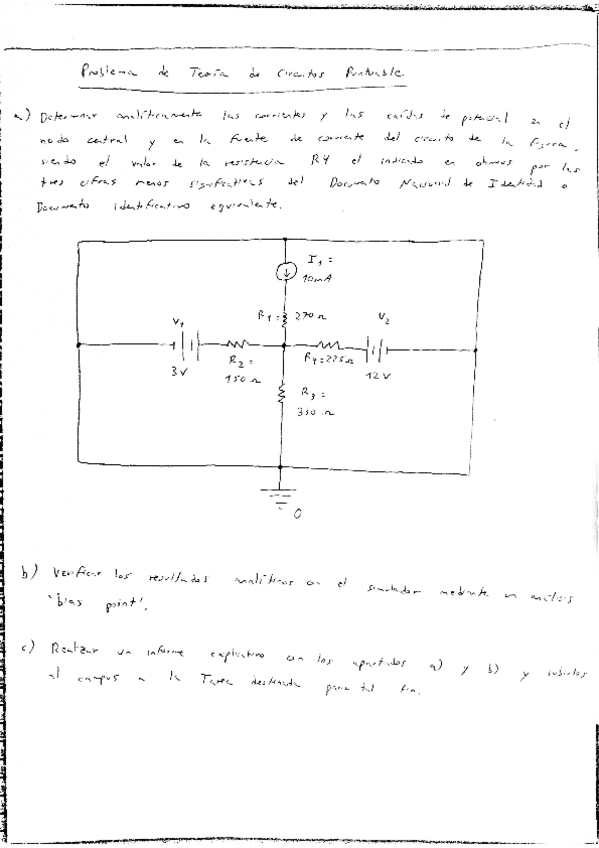 Problema de Teoría de Circuitos Puntuable
a) Determinar analíticamente las corrientes y las caídas de potencial en el
nodo central y en la fuente de corriente del circuito de la figura,
siendo el valor de la resistencia R4 el indicado en ohmios por las
tres cifras menos significativas del Documento Nacional de Identidad o
Documento identificativo equivalente.
I1 =
10mA
R1 = 270 Ω
V1
V2
R2 =
150 Ω
R4 = 225 Ω
3V
12V
R3 =
330 Ω
0
b) Verificar los resultados analíticos con el simulador mediante un análisis
'bias point'.
c) Realizar un informe explicativo con los apartados a) y b) y subirlos
al campus a la Tarea destinada para tal fin.